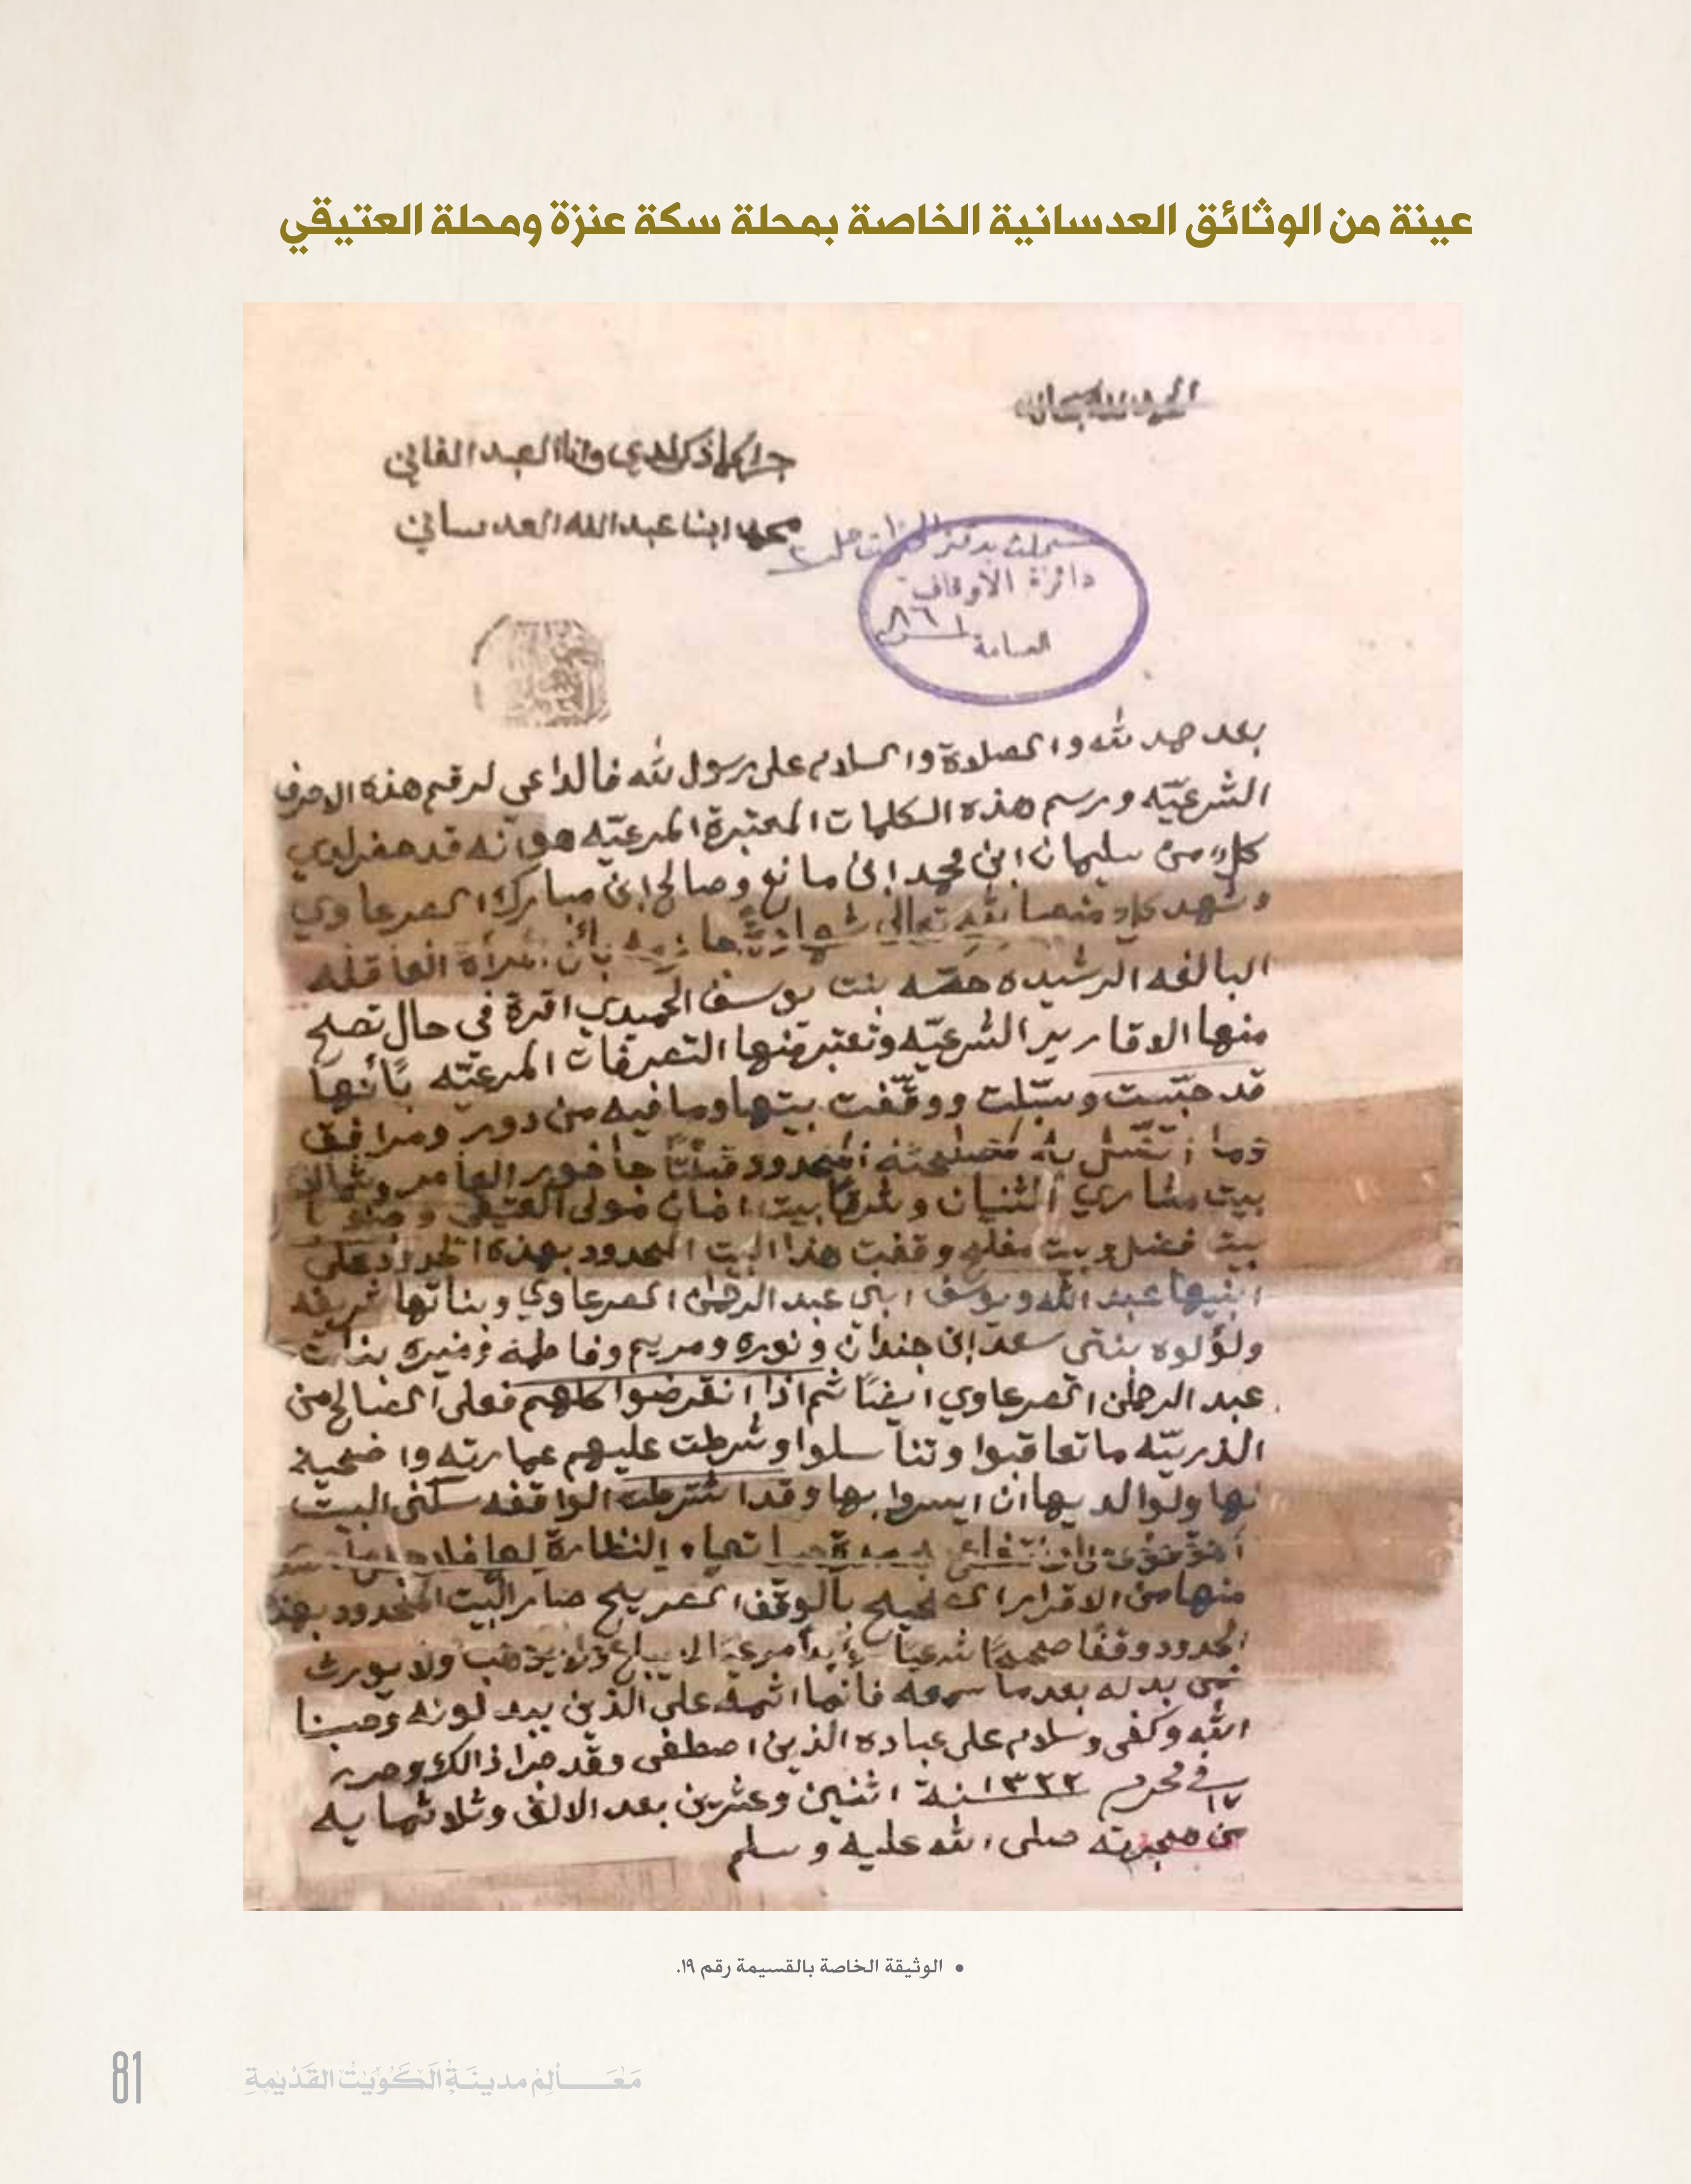 عينة من الوثائق العدسانية الخاصة بمحلة سكة عنزة ومحلة العتيقي
الحمد لله سبحانه
جرا كما ذكر لدي وانا العبد الفاني
محمد ابن عبدالله العدساني
سجلت بدفتر
دائرة الأوقاف
العامة
بعد حمد لله والصلاة والسلام على رسول لله فالداعي لرقم هذه الاحرف
الشرعيّه ورسم هذه الكلمات المعتبرة المرعيّه هو أنه قد حضر لدي
كلا من سليمان ابن محمد ابن مانع وصالح ابن مبارك الصرعاوي
وشهد كلا منهما بالله تعالى بأن المرأة العاقله
البالغه الرشيده حصّه بنت يوسف الحميدي اقرة في حال تصلح
منها الاقارير الشرعيّه وتعتبر منها التصرفات المرعيّه بأنها
قد حبّست وسبّلت ووقّفت بيتها وما فيه من دور ومرافق
وما يتصل به المحدود قبلتا جاخور العامر وشمالا
بيت مشاري الثنيان وشرقا بيت امان مولى العتيقي وجنوبا
بيت فضل وبيت مفلح وقفت هذا البيت المحدود بهذه الحدود على
ابنيها عبد الله ويوسف ابني عبد الرحمن الصرعاوي وبناتها شريفه
ولؤلوه بنتي سعد ابن جندان ونوره ومريم وفاطمه ومنيره بنات
عبد الرحمن الصرعاوي ايضا ثم اذا انقرضوا كلهم فعلى الصالح من
الذريّه ما تعاقبوا وتناسلوا وشرطت عليهم عمارته واضحية
لها ولوالديها ان ايسروا بها وقد اشترطت الواقفه سكنى البيت
مدة حياتها والنظارة لها
منها من الاقرار الصحيح بالوقف الصريح صار البيت المحدود بهذه
الحدود وقفا صحيحا شرعيا مرعيا لا يباع ولا يوهب ولا يورث
فمن بدله بعد ما سمعه فانما اثمه على الذين يبدلونه وحسبنا
الله وكفى وسلام على عباده الذين اصطفى وقد جرا ذالك وحرر
في ١٧ محرم ١٣٢٢ سنة اثنين وعشرين بعد الالف وثلاثمايه
من هجرته صلى الله عليه وسلم
• الوثيقة الخاصة بالقسيمة رقم ١٩.
81
مَعَـالِم مدينَةُ الكُوَيْت القَدْيمةِ